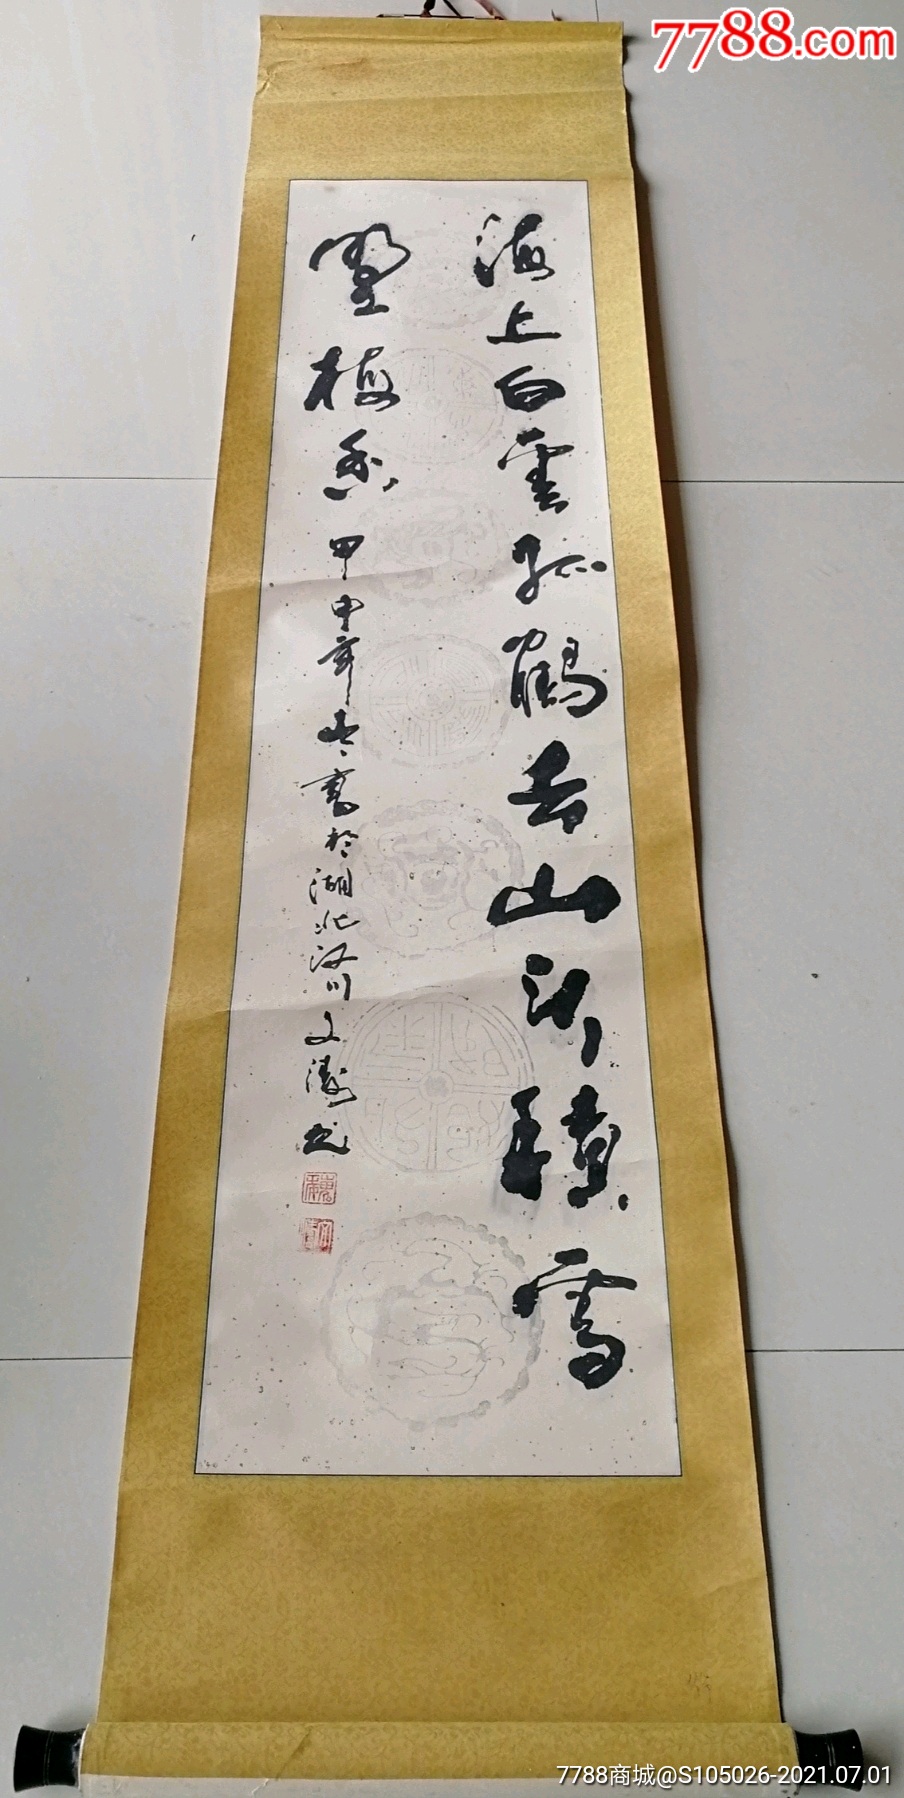 7788.com
海上白雲孤鶴去山頭積雪
野梅香甲申年冬寫於湖北汉川文濤书
7788商城@S105026-2021.07.01